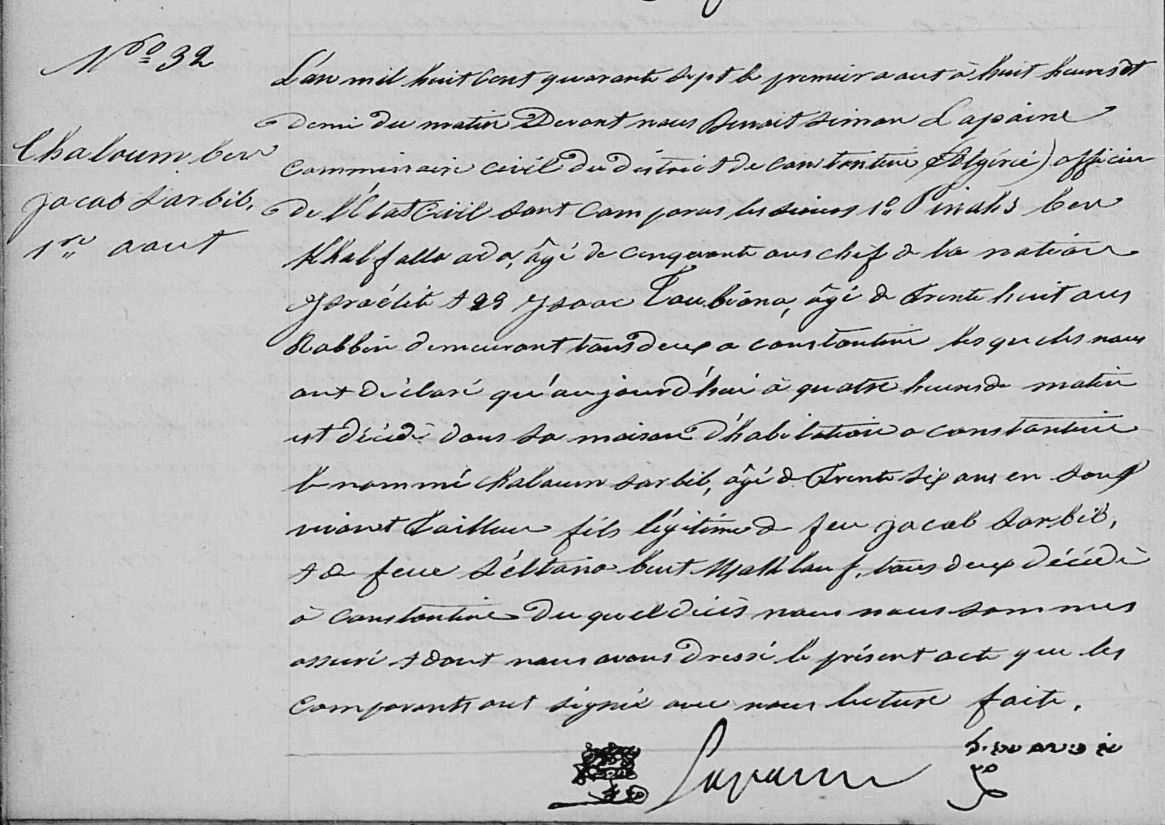 N.ro 32
Chaloum ben
jacob Sarbib,
1.er aout
L'an mil huit cent quarante sept le premier aout à huit heures et
demi du matin Devant nous Benoit Simon Lapaine
Commissaire civil du district de Constantine (Algérie) officier
de l'Etat Civil sont Comparus les sieurs 1.o Pinahs ben
Khalfalla ada, âgé de cinquante ans chef de la nation
Israélite et 2.o Isaac Toubiana, âgé de trente huit ans
Rabbin demeurant tous deux a constantine lesquels nous
ont déclaré qu'aujourd'hui à quatre heures de matin
est décédé dans sa maison d'habitation a constantine
le nommé Chaloum Sarbib, âgé de trente six ans en sont
vivant Tailleur fils légitime de feu jacob Sarbib,
et de feue Seltana bent Makhlouf, tous deux décédé
à Constantine Duquel décès nous nous sommes
assuré et dont nous avons Dressé le présent acte que les
Comparants ont signé avec nous lecture faite.
Lapaine